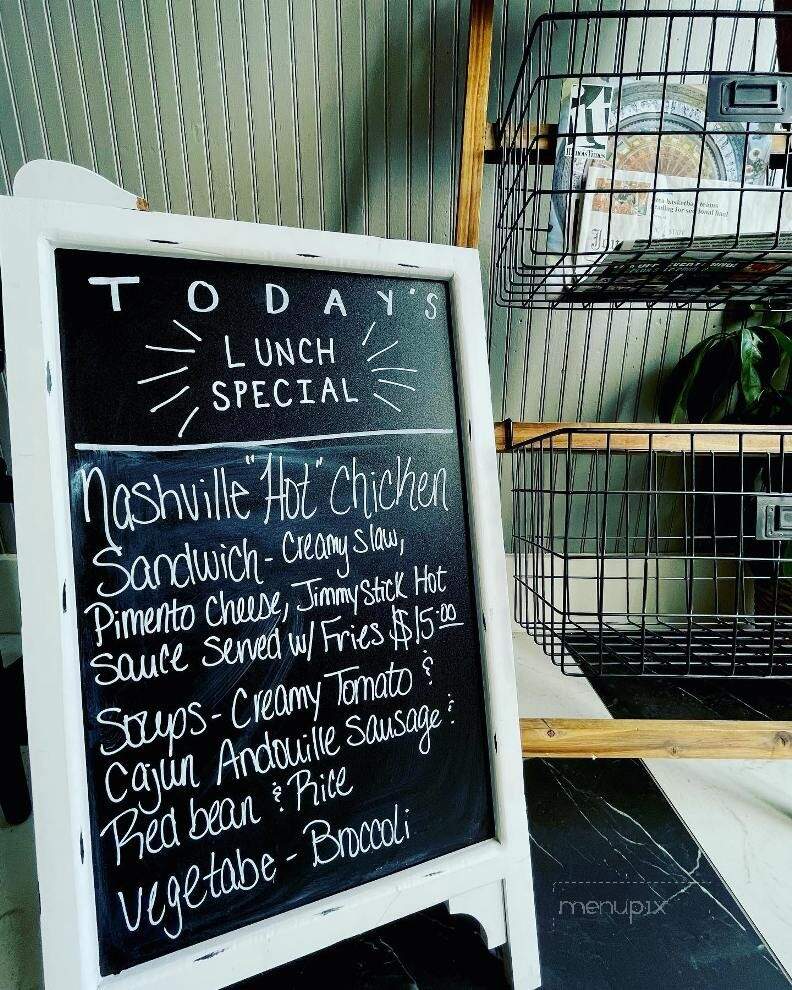 TODAY'S
LUNCH
SPECIAL
Nashville "Hot" Chicken
Sandwich - Creamy Slaw,
Pimento Cheese, Jimmy Stick Hot
Sauce Served w/ Fries $15.00
Soups - Creamy Tomato &
Cajun Andouille Sausage &
Red bean & Rice
Vegetabe - Broccoli
ILLINOIS TIMES
menupix